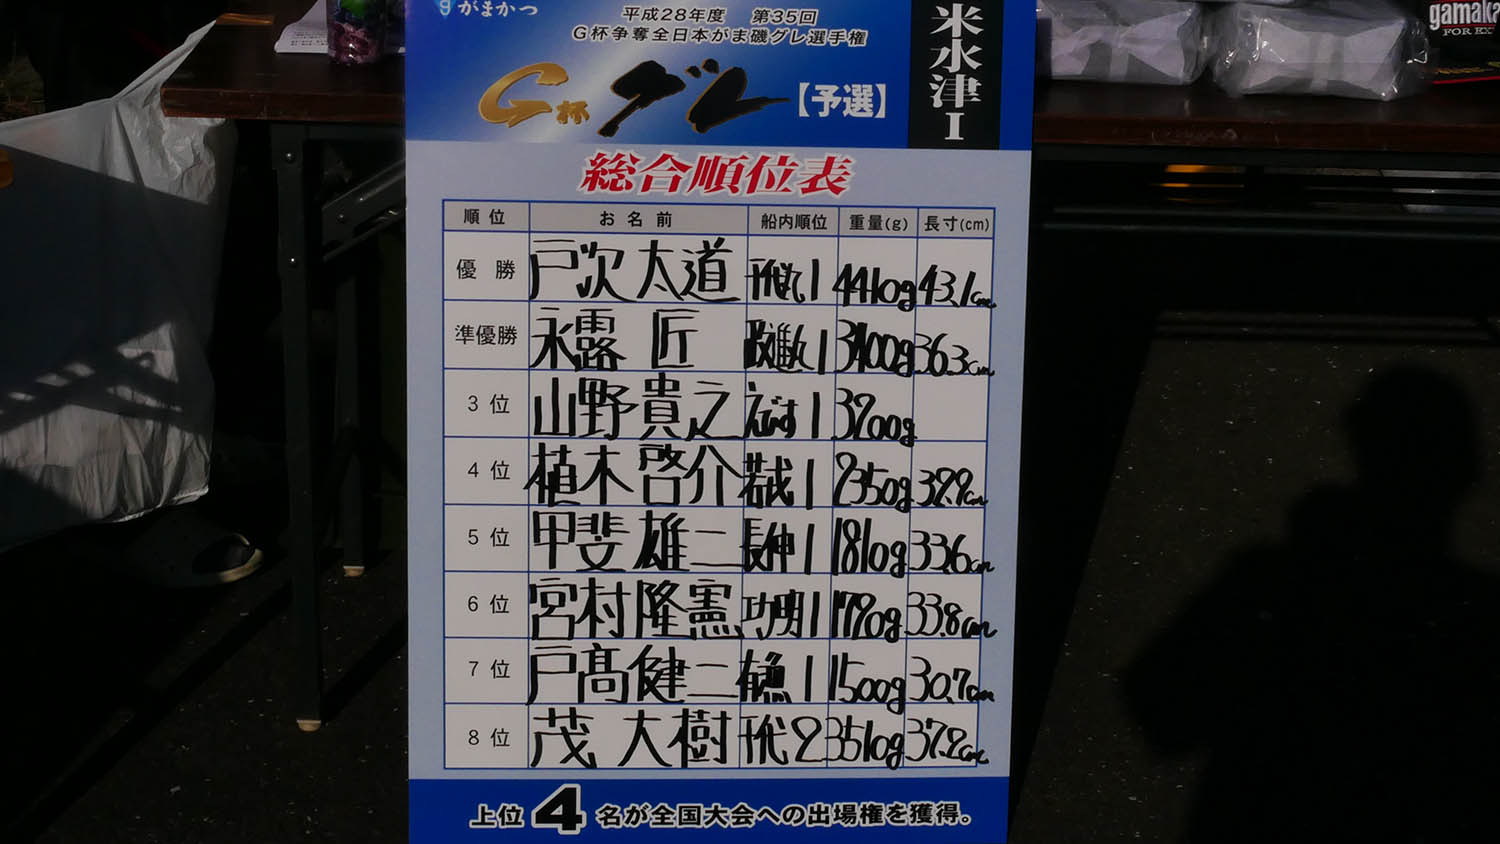 がまかつ
平成28年度　第35回
G杯争奪全日本がま磯グレ選手権
G杯 グレ 【予選】
米水津I
gamaka
FOR EX
総合順位表
順位 お名前 船内順位 重量(g) 長寸(cm)
優勝 戸次太道 千代丸1 4410g 43.1cm
準優勝 永露 匠 政進丸1 3400g 36.3cm
3位 山野貴之 えびす1 3200g
4位 植木啓介 若戎1 2350g
5位 甲斐雄二 長伸1 1810g 33.6cm
6位 宮村隆憲 功明1 33.8cm
7位 戸髙健二 1 1500g 30.7cm
8位 茂 大樹 千代2 3510g 37.2cm
上位4名が全国大会への出場権を獲得。